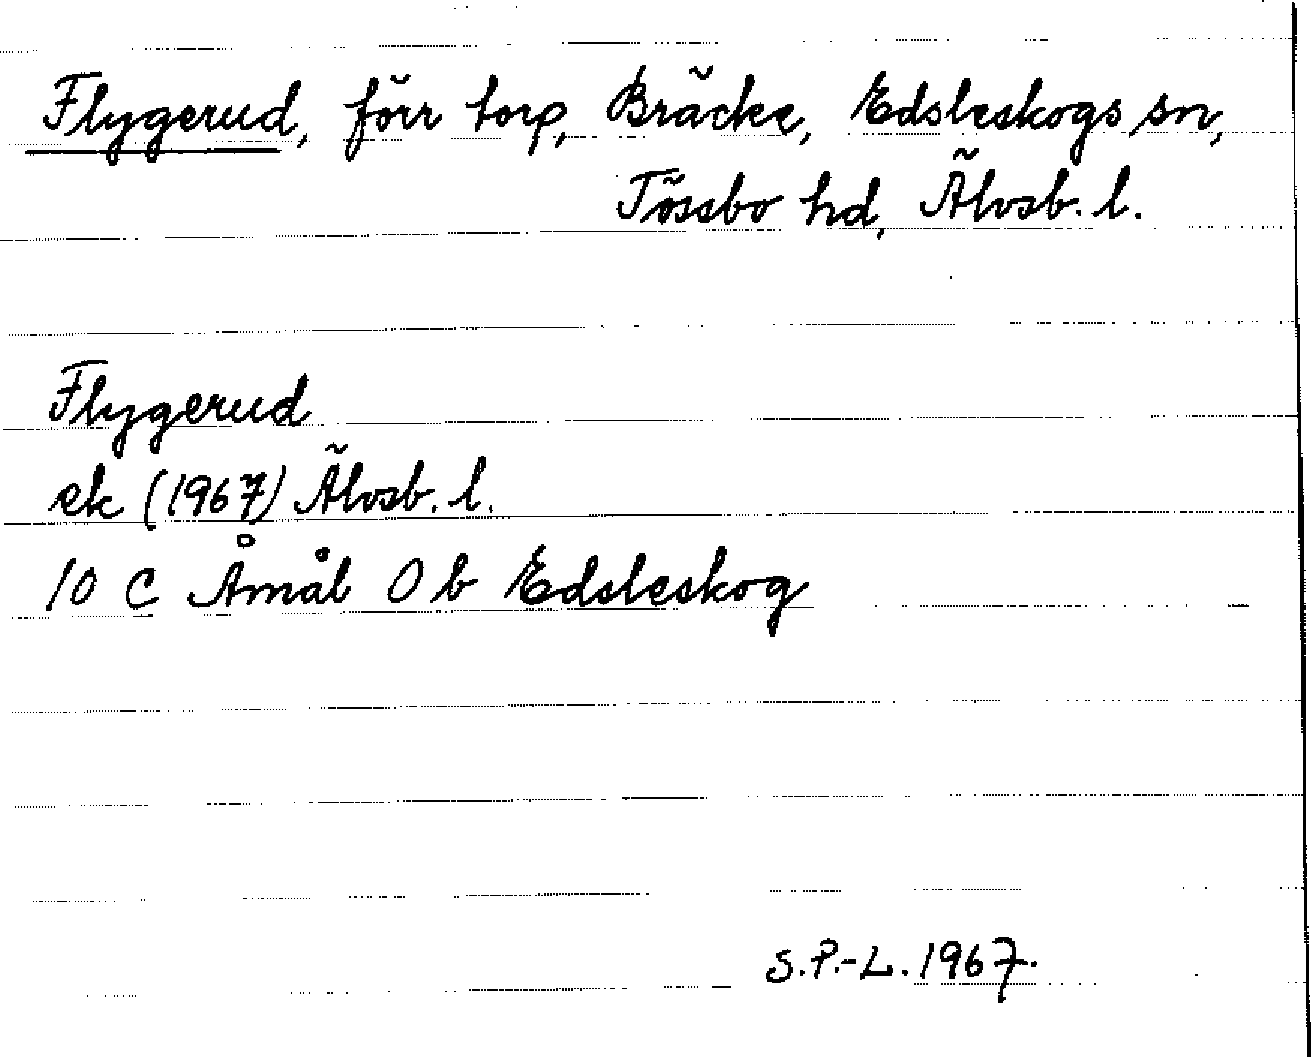 Flygerud, förr torp, Bräcke, Edsleskogs sn,
Tössbo hd, Älvsb. l.
Flygerud
ek (1967) Älvsb. l.
10 C Åmål 0 b Edsleskog
S.P.-L. 1967.